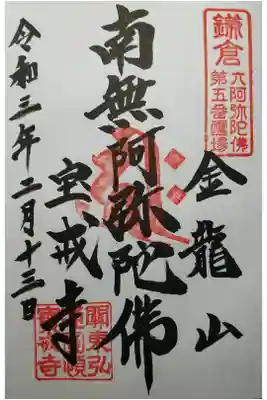 鎌倉
六阿弥陀佛
第五番靈場
金龍山
南無阿弥陀佛
宝戒寺
令和三年二月十三日
關東弘